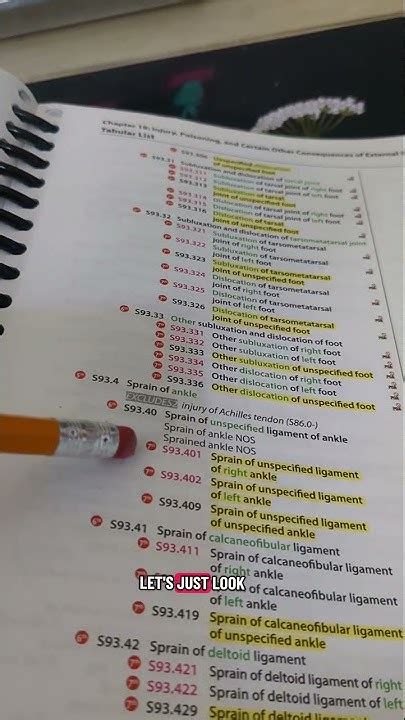 Chapter 19: Injury, Poisoning, and Certain Other Consequences of External
Tabular List
S93.306 Unspecified
of unspecified foot
S93.31 Subluxation and dislocation of tarsal joint
S93.311 Subluxation of tarsal joint of right foot
S93.312 Subluxation of tarsal joint of left foot
S93.313 Subluxation of tarsal
joint of unspecified foot
S93.314 Dislocation of tarsal joint of right foot
S93.315 Dislocation of tarsal joint of left foot
S93.316 Dislocation of tarsal
joint of unspecified foot
S93.32 Subluxation and dislocation of tarsometatarsal joint
S93.321 Subluxation of tarsometatarsal
joint of right foot
S93.322 Subluxation of tarsometatarsal
joint of left foot
S93.323 Subluxation of tarsometatarsal
joint of unspecified foot
S93.324 Dislocation of tarsometatarsal
joint of right foot
S93.325 Dislocation of tarsometatarsal
joint of left foot
S93.326 Dislocation of tarsometatarsal
joint of unspecified foot
S93.33 Other subluxation and dislocation of foot
S93.331 Other subluxation of right foot
S93.332 Other subluxation of left foot
S93.333 Other subluxation of unspecified foot
S93.334 Other dislocation of right foot
S93.335 Other dislocation of left foot
S93.336 Other dislocation of unspecified foot
S93.4 Sprain of ankle
EXCLUDES2 injury of Achilles tendon (S86.0-)
S93.40 Sprain of unspecified ligament of ankle
Sprain of ankle NOS
Sprained ankle NOS
7th S93.401 Sprain of unspecified ligament
of right ankle
7th S93.402 Sprain of unspecified ligament
of left ankle
7th S93.409 Sprain of unspecified ligament
of unspecified ankle
6th S93.41 Sprain of calcaneofibular ligament
7th S93.411 Sprain of calcaneofibular ligament
of right ankle
LET'S JUST LOOK
of calcaneofibular ligament
of left ankle
7th S93.419 Sprain of calcaneofibular ligament
of unspecified ankle
6th S93.42 Sprain of deltoid ligament
7th S93.421 Sprain of deltoid ligament of right
7th S93.422 Sprain of deltoid ligament of left
7th S93.429 Sprain of deltoid ligament